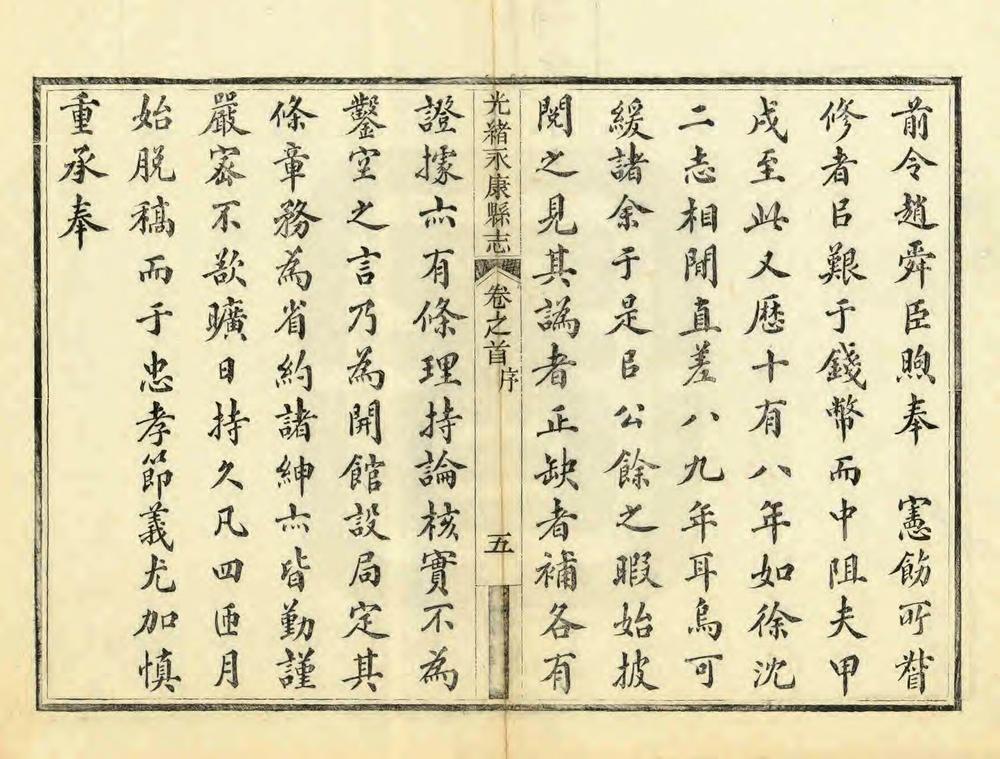 前令趙舜臣煦奉 憲飭所嘗
修者㠯艱于錢幣而中阻夫甲
戌至此又歷十有八年如徐沈
二志相閒直差八九年耳烏可
緩諸余于是㠯公餘之暇始披
閱之見其譌者正缺者補各有
光緒永康縣志 卷之首 序 五
證據亦有條理持論核實不為
鑿空之言乃為開館設局定其
條章務為省約諸紳亦皆勤謹
嚴密不歘曠日持久凡四匝月
始脫稿而于忠孝節義尤加慎
重承奉